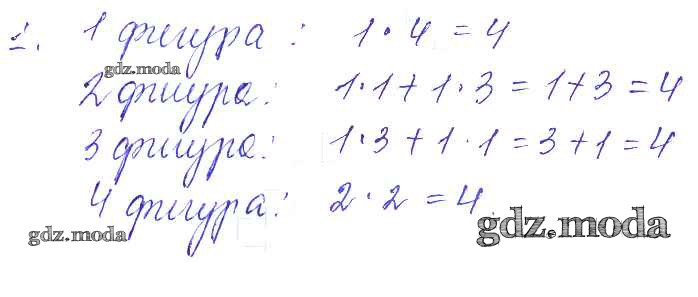 1. 1 фигура: 1·4=4
gdz.moda
2 фигура: 1·1+1·3=1+3=4
3 фигура: 1·3+1·1=3+1=4
4 фигура: 2·2=4
gdz.moda
gdz.moda